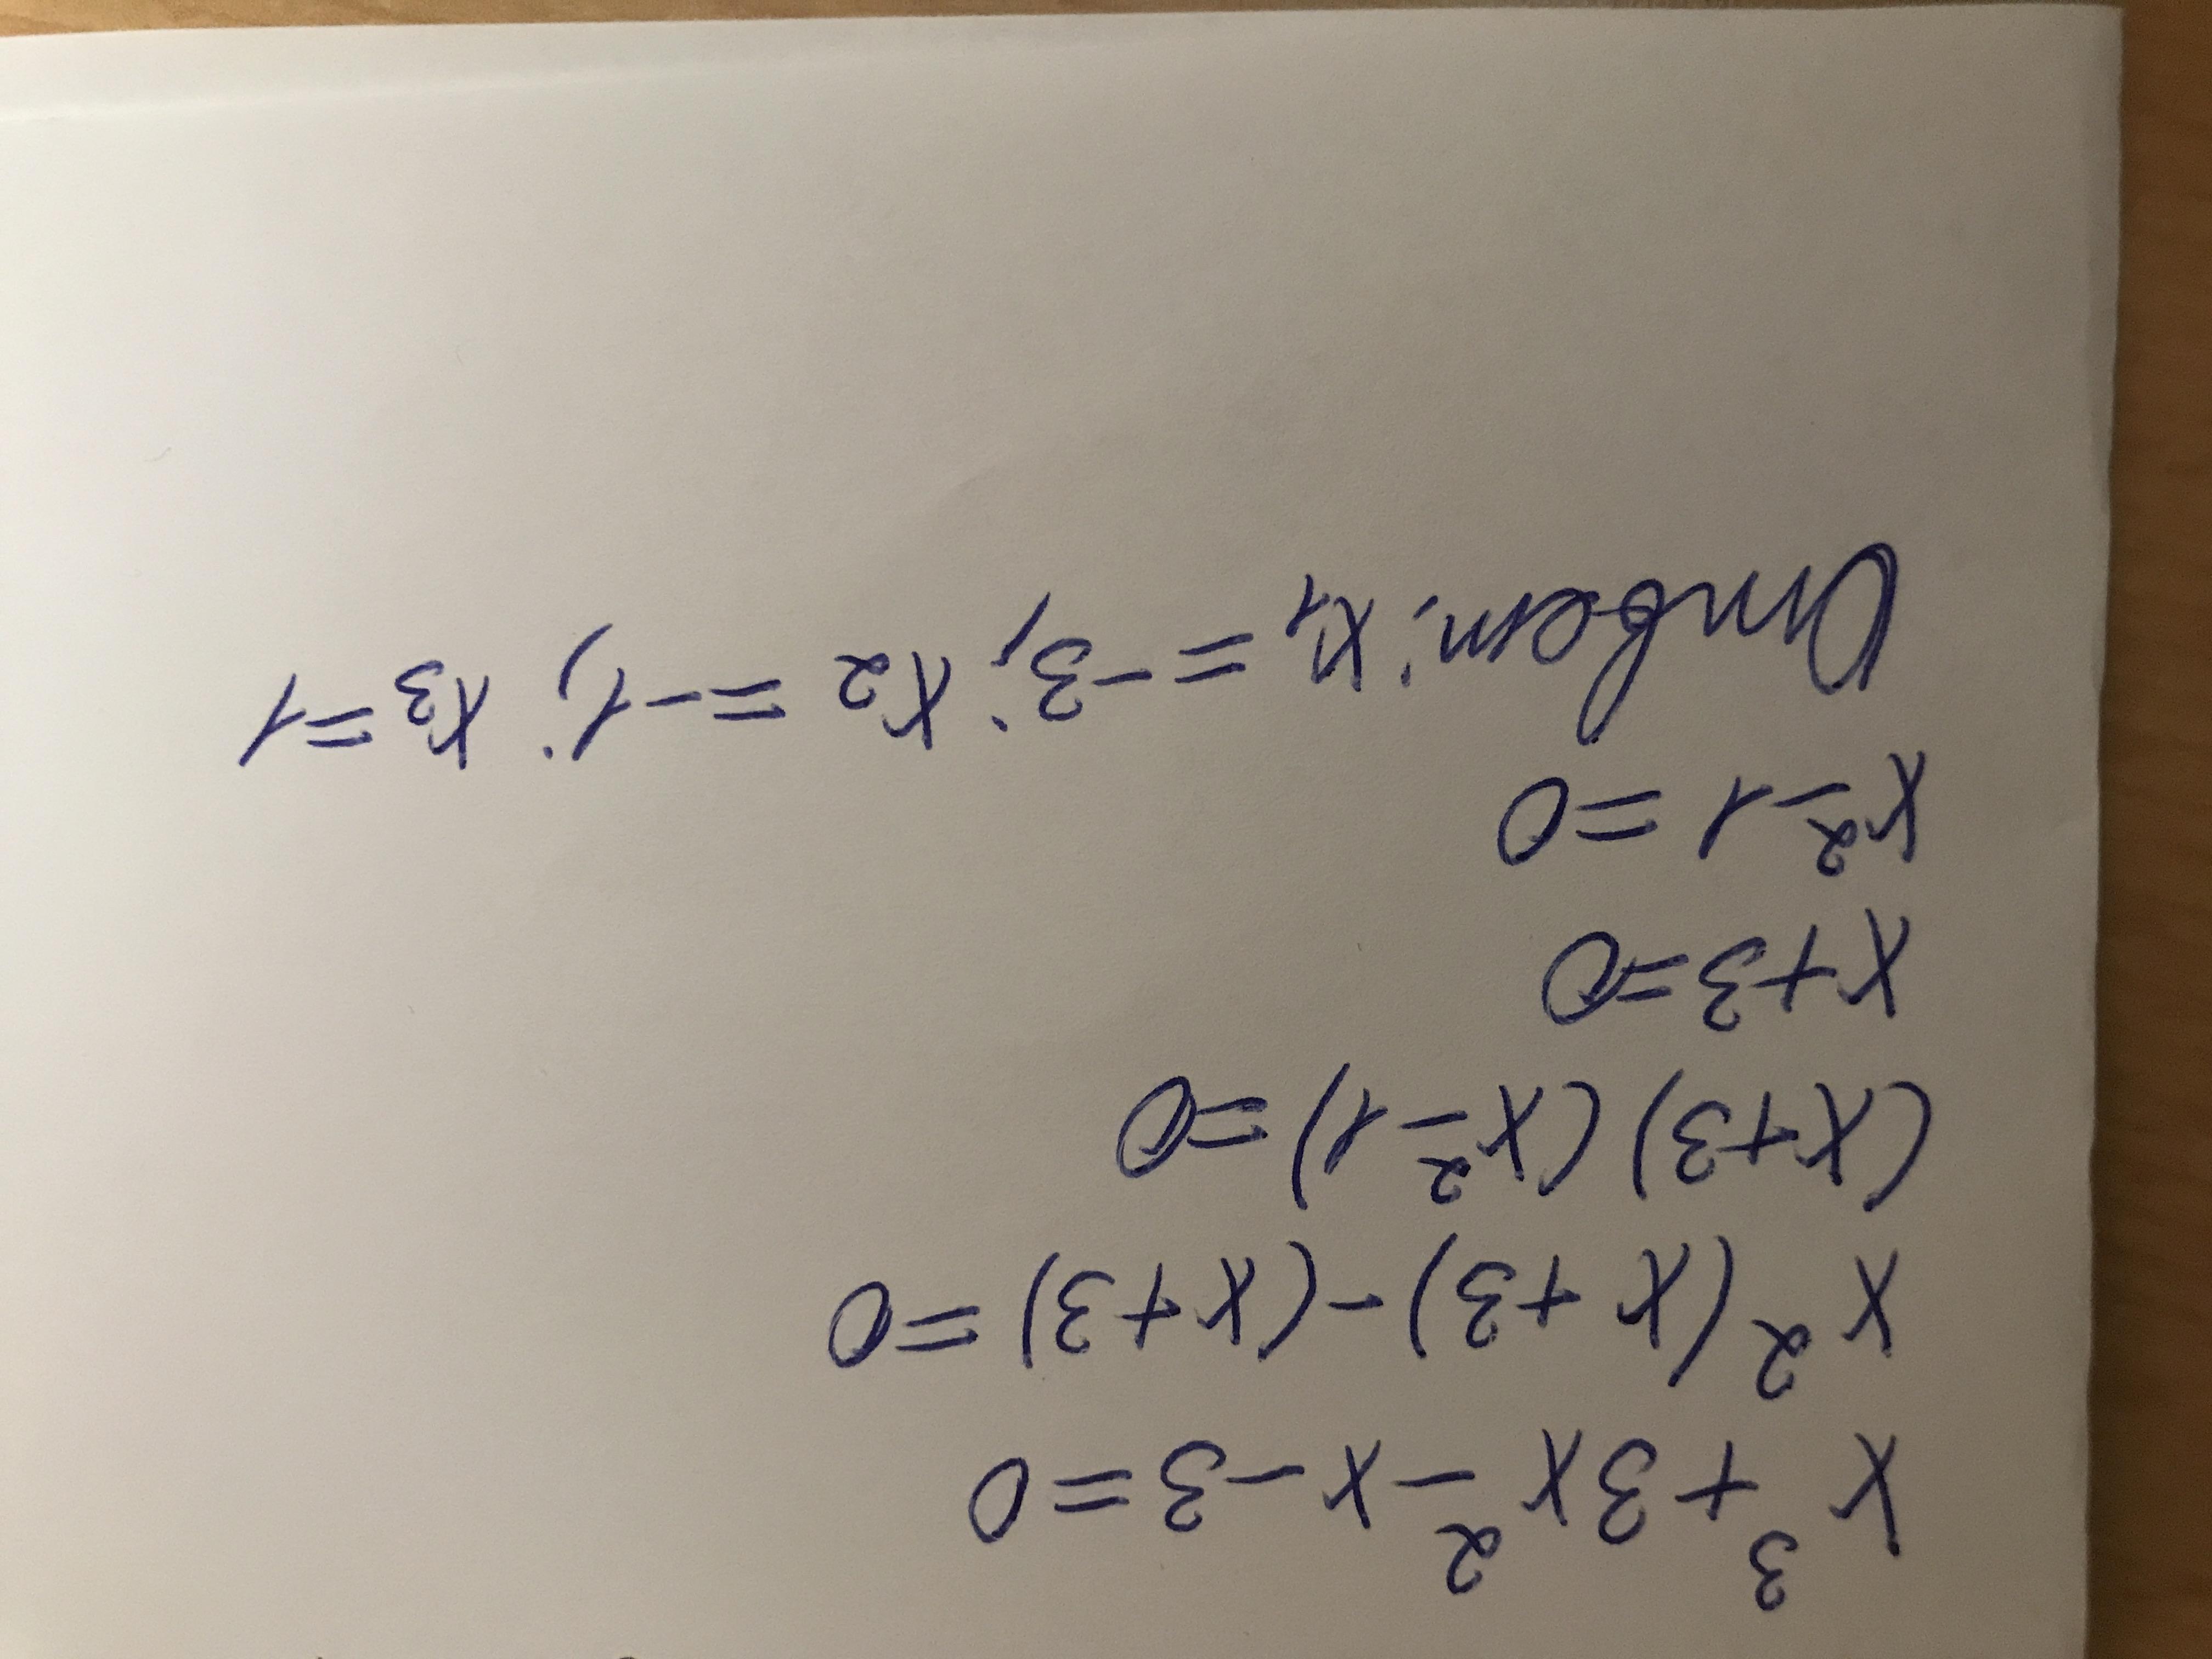 x³+3x²-x-3=0
x²(x+3)-(x+3)=0
(x+3)(x²-1)=0
x+3=0
x²-1=0
Ответ: x₁=-3; x₂=-1; x₃=1